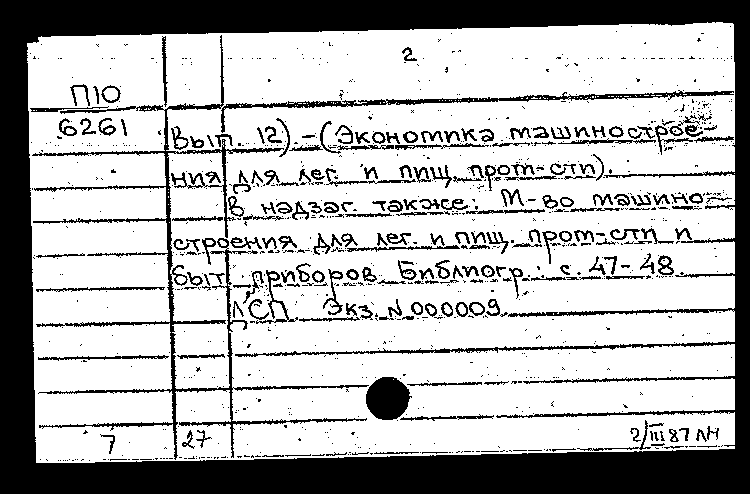 2
П10
6261
Вып. 12) – (Экономика машиностроe-
ния для лег. и пищ. пром-сти).
В надзаг. также: М-во машино-
строения для лег. и пищ. пром-сти и
быт. приборов. Библиогр.: с. 47-48.
ДСП Экз. N 000009
7 27 2/III 87 ЛН